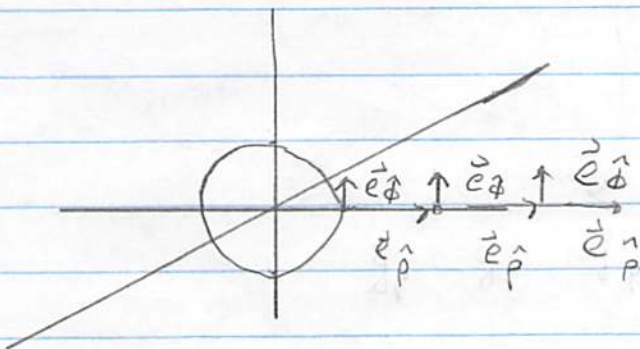 e⃗_φ̂ e⃗_φ̂ e⃗_φ̂
e⃗_ρ̂ e⃗_ρ̂ e⃗_ρ̂